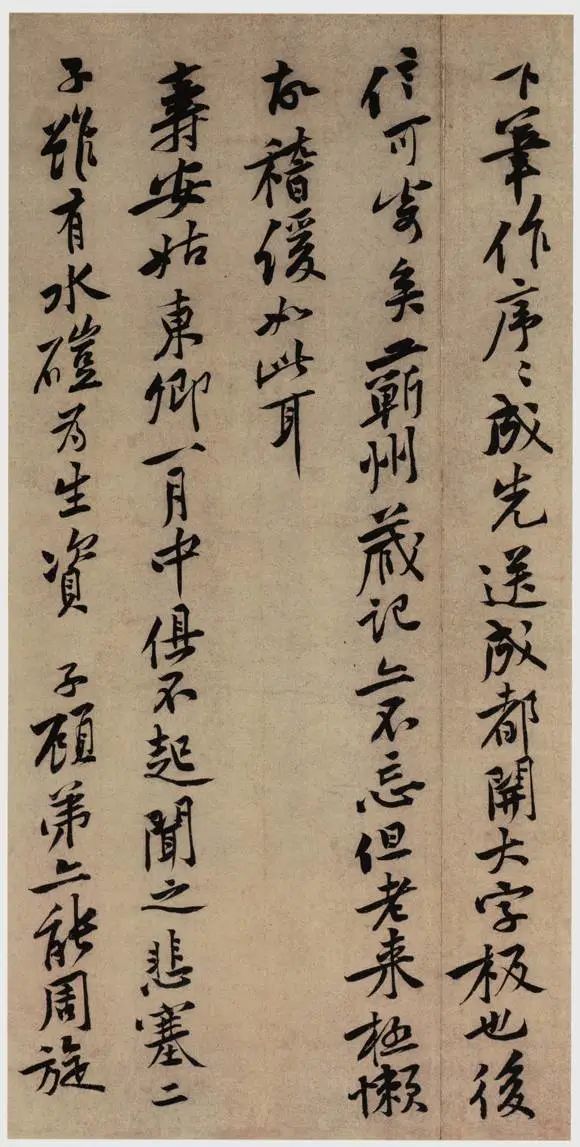 下筆作序〻成先送成都開大字板也後
信可寄矣王蘄州葳記亦不忘但老来極懶
故稽缓如此耳
壽安姑東卿一月中俱不起聞之悲塞二
子雖有水磑为生資 子顧弟亦能周旋